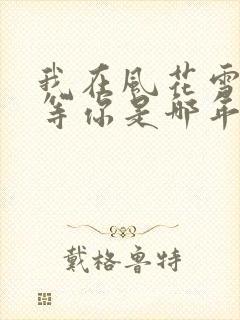 我在風花雪
等你是那年
戴格魯特